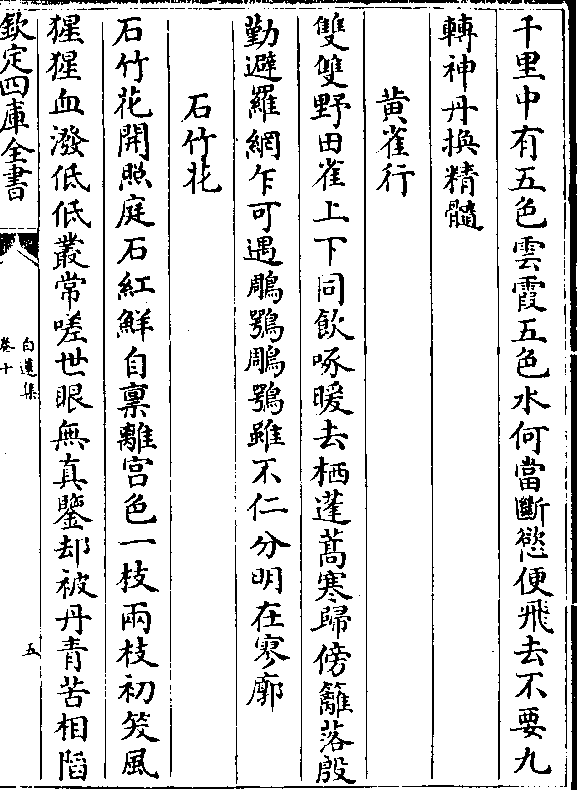 千里中有五色雲霞五色水何當斷慾便飛去不要九
轉神丹換精髓
黄雀行
雙雙野田雀上下同飲啄暖去栖蓬蒿寒歸傍籬落殷
勤避羅網乍可遇鵰鶚鵰鶚雖不仁分明在寥廓
石竹花
石竹花開照庭石紅鮮自禀離宫色一枝兩枝初笑風
猩猩血潑低低叢常嗟世眼無真鑒却被丹青苦相陷
欽定四庫全書
白蓮集
卷十
五